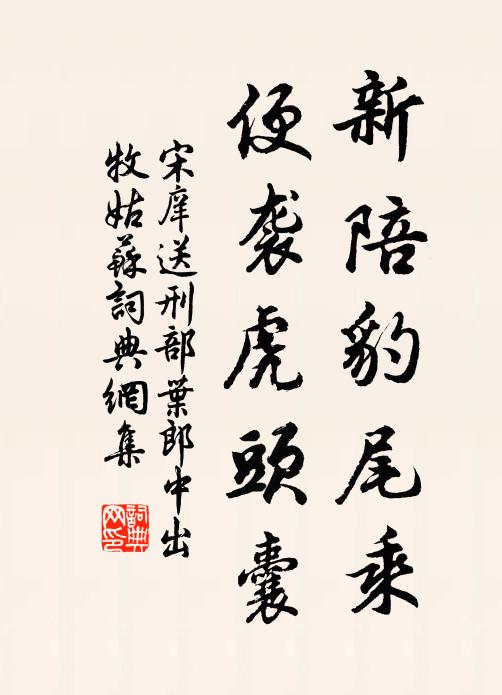 新陪豹尾乘
便袭虎頭囊
宋庠送刑部葉郎中出
牧姑蘇詞典網集
詞典
网印